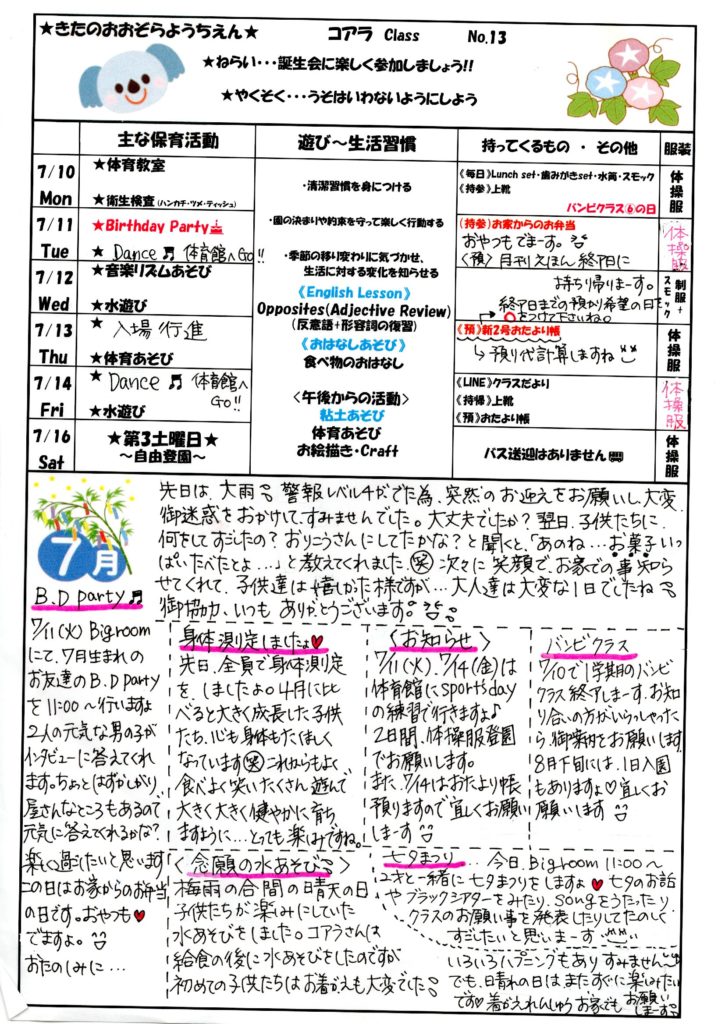 ★きたのおおぞらようちえん★ コアラ Class No.13
★ねらい・・・誕生会に楽しく参加しましょう!!
★やくそく・・・うそはいわないようにしよう
主な保育活動 遊び～生活習慣 持ってくるもの ・ その他 服装
7/10 Mon
★体育教室
★衛生検査(ハンカチ・ツメ・ティッシュ)
7/11 Tue
★Birthday Party
★ Dance♬ 体育館へGo!!
7/12 Wed
★音楽リズムあそび
★水遊び
7/13 Thu
★ 入場行進
★体育あそび
7/14 Fri
★ Dance♬ 体育館へGo!!
★水遊び
7/16 Sat
★第3土曜日★
～自由登園～
・清潔習慣を身につける
・園の決まりや約束を守って楽しく行動する
・季節の移り変わりに気づかせ、
生活に対する変化を知らせる
《English Lesson》
Opposites(Adjective Review)
(反意語+形容詞の復習)
《おはなしあそび》
食べ物のおはなし
<午後からの活動>
粘土あそび
体育あそび
お絵描き・Craft
《毎日》Lunch set・歯みがきset・水筒・スモック
《持参》上靴
バンビクラス⑥の日
(持参)お家からのお弁当
おやつもでまーす。
<預>月刊えほん 終了日に
持ち帰りまーす。
終了日までの預かり希望の日を
○をつけて下さいね。
《預》新2号おたより帳
↳預り代計算しますね
《LINE》クラスだより
《持帰》上靴
《預》おたより帳
バス送迎はありません
体操服
体操服
制服+スモック
体操服
体操服
体操服
7月
先日は、大雨 警報レベル4がでた為、突然のお迎えをお願いし、大変
御迷惑をおかけして、すみませんでした。大丈夫でしたか? 翌日、子供たちに
何をしてすごしたの? おりこうさんにしてたかな? と聞くと、「あのね…お菓子いっ
ぱいたべたとよ…」と教えてくれました。㊗笑 次々に笑顔で、お家での事知ら
せてくれて、子供達は嬉しかった様ですが…大人達は大変な1日でしたね
御協力、いつも ありがとうございます。
B.D party♬
7/11(火) Bigroom
にて、7月生まれの
お友達のB.D Party
を11:00～行いますよ
2人の元気な男の子が
インタビューに答えてくれ
ます。ちょとはずかしがり
屋さんなところもあるので
元気に答えてくれるかな?
楽しく過ごしたいと思います
この日はお家からのお弁当
の日です。おやつも♥
でますよ。
おたのしみに…
身体測定しましたよ♥
先日、全員で身体測定
を、しましたよ。4月に比
べると大きく成長した子供
たち、心も身体もたくましく
なっています笑 これからもよく
食べよく笑いたくさん遊んで
大きく大きく健やかに育ち
ますように…とっても楽しみですね。
<お知らせ>
7/11(火)、7/14(金)は
体育館にsportsday
の練習で行きますよ♪
2日間、体操服登園
でお願いします。
また、7/14はおたより帳
預りますので宜しくお願い
しまーす
バンビクラス
7/10で1学期のバンビ
クラス終了しまーす。お知
り合いの方がいらっしゃった
ら、御案内をお願いします
8月下旬には、1日入園
もありますよ♡宜しくお
願いします
<念願の水あそび>
梅雨の合間の晴天の日
子供たちが楽しみにしていた
水あそびをしました。コアラさんは
給食の後に水あそびをしたのですが
初めての子供たちはお着がえも大変でした
七夕まつり… 今日、Bigroom 11:00～
2才と一緒に七夕まつりをしますよ♥七夕のお話
やブラックシアターをみたり、songをうたったり
クラスのお願い事を発表したりしてたのしく
すごしたいと思いまーす
いろいろハプニングもあり すみません
でも、晴れの日は またすぐに楽しみたい
です♡着がえれんしゅう お家でも お願いしまーす